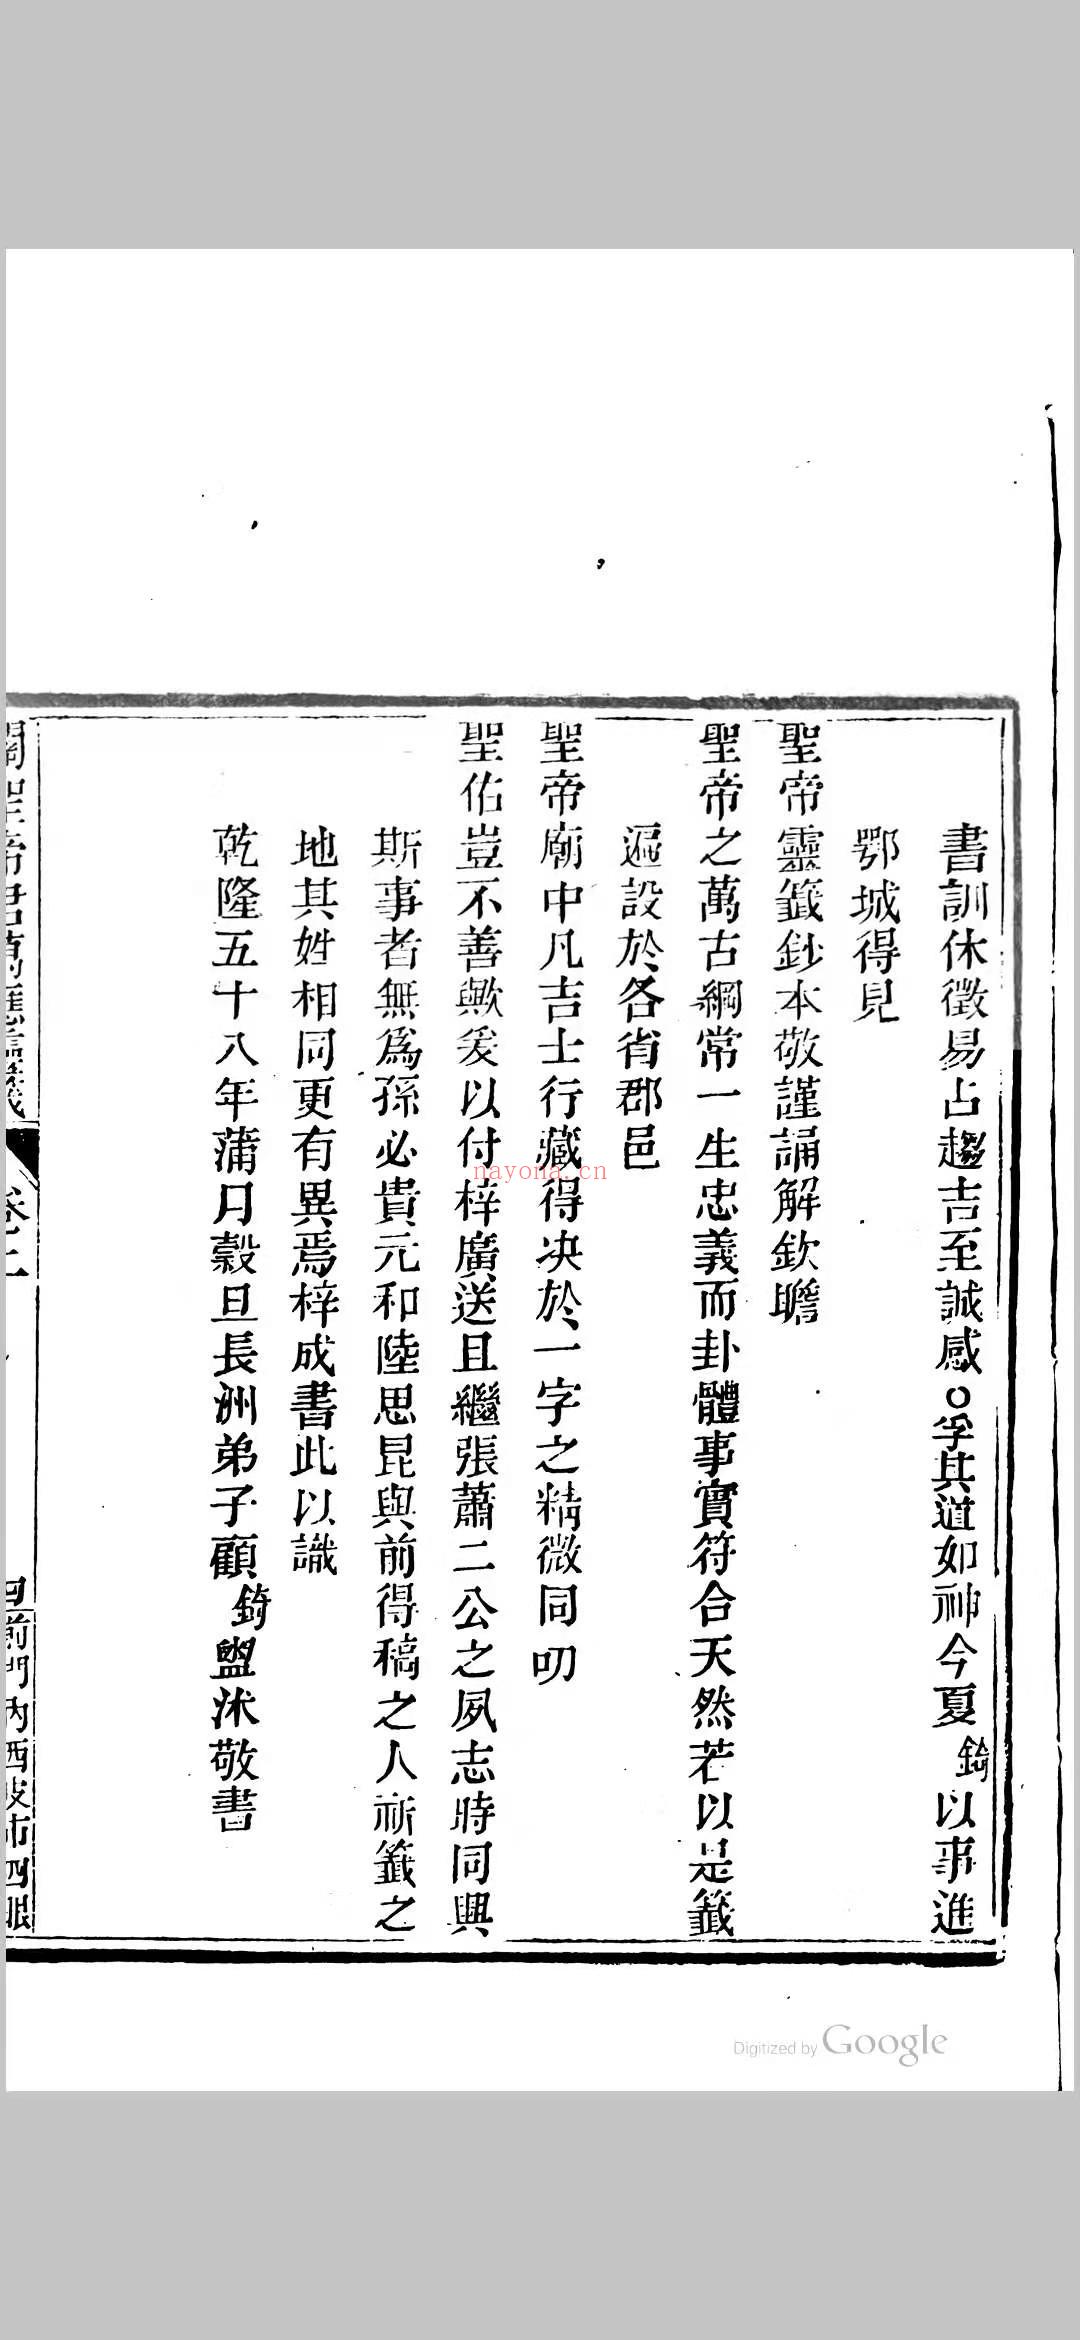 書訓休徵易占趨吉至誠感○孚其道如神今夏錡以事進
鄂城得見
聖帝靈籤鈔本敬謹誦解欽瞻
聖帝之萬古綱常一生忠義而卦體事實符合天然若以是籤
遍設於各省郡邑
聖帝廟中凡吉士行藏得決於一字之精微同叨
聖佑豈不善歟爰以付梓廣送且繼張蕭二公之夙志時同興
斯事者無為孫必貴元和陸思昆與前得稿之人祈籤之
地其姓相同更有異焉梓成書此以識
乾隆五十八年蒲月穀旦長洲弟子顧錡盥沐敬書
關聖帝君萬應靈籤
卷上
前門內西皮市四眼
nayona.cn
Digitized by Google